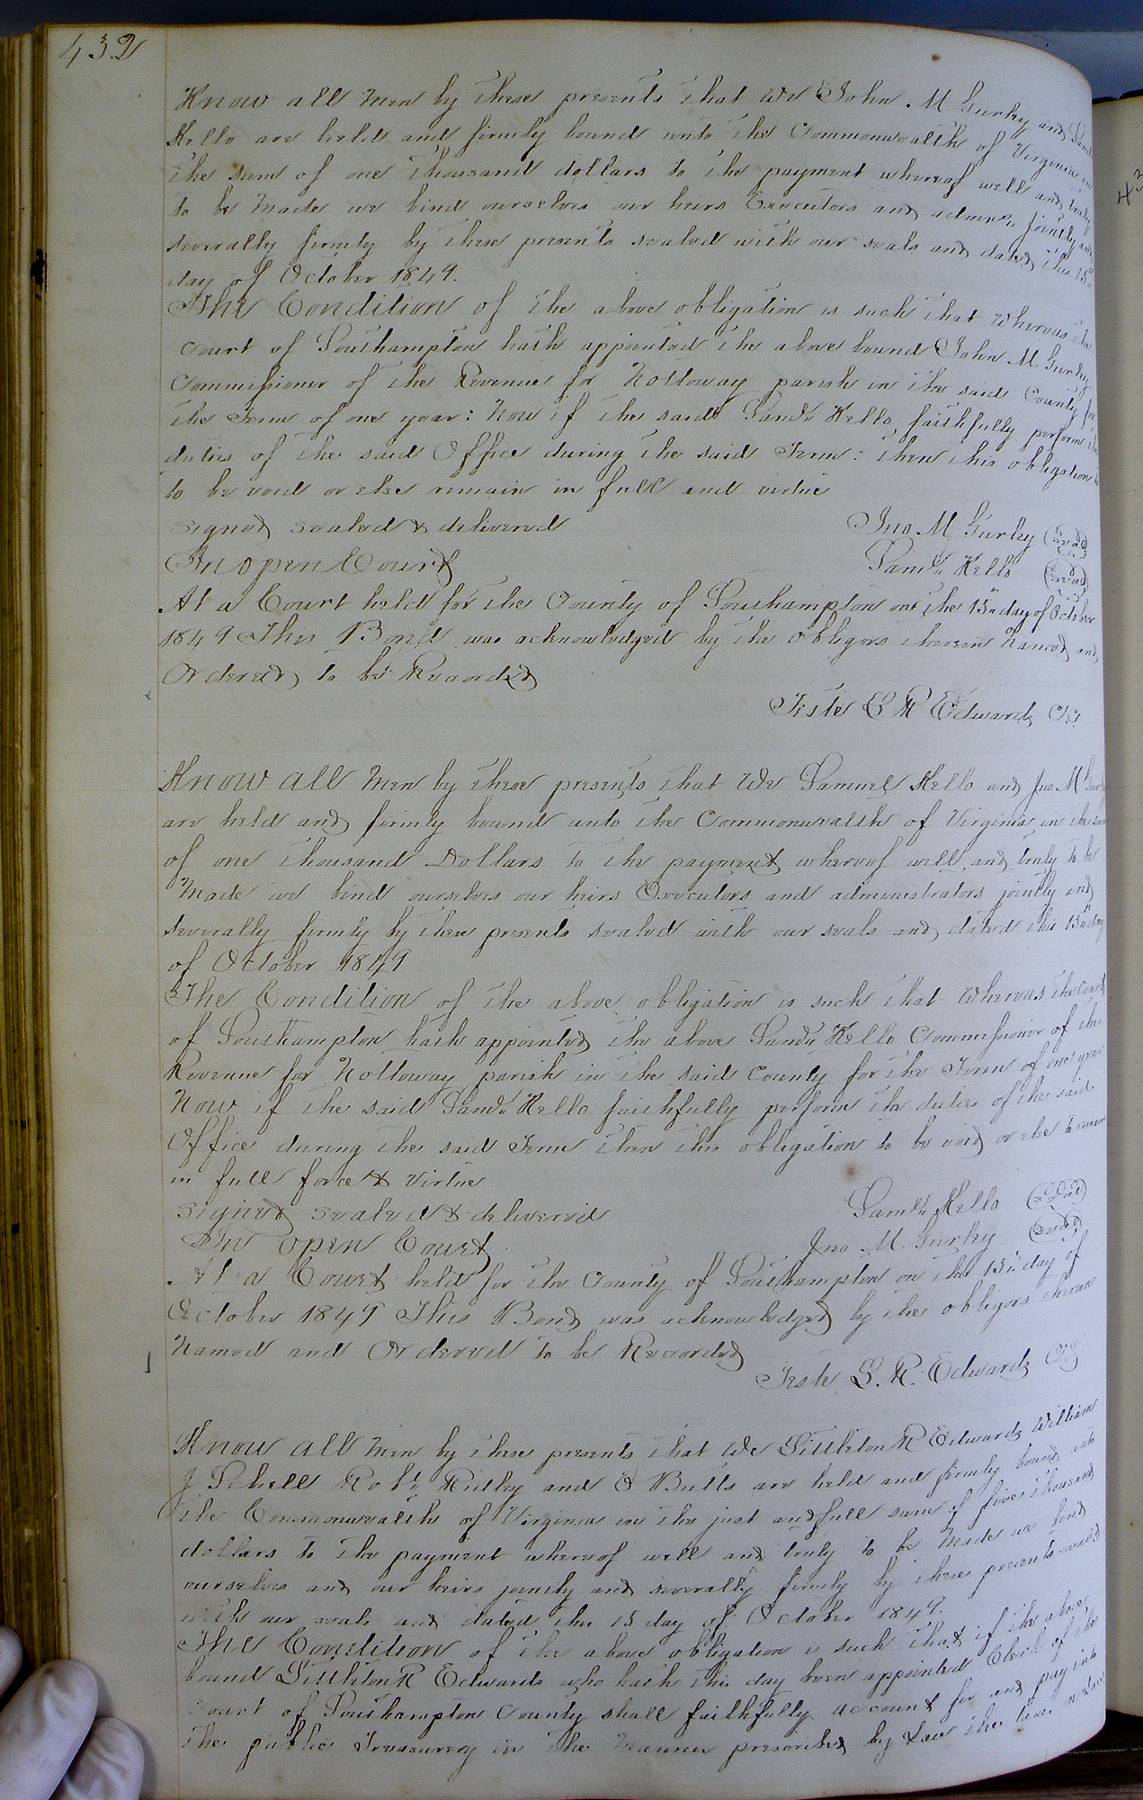 432
Know all Men by these presents that We John M Gurley and Saml
Kello are held and firmly bound unto the Commonwealth of Virginia in
the sum of one thousand dollars to the payment whereof well and truly
to be made we bind ourselves our heirs Executors and admrs jointly and
severally firmly by these presents sealed with our seals and dated this 15th
day of October 1849.
The Condition of the above obligation is such that Whereas the
Court of Southampton hath appointed the above bound John M. Gurley
Commissioner of the Revenue for Nottoway parish in the said County for
the Term of one year: Now if the said Saml Kello faithfully perform the
duties of the said Office during the said Term: then this obligation
to be void or else remain in full and virtue
signed sealed & delivered Jno M Gurley (seal)
In open Court Saml Kello (seal)
At a Court held for the County of Southampton on the 15th day of October
1849 This Bond was acknowledged by the obligors therein Named and
Ordered to be Recorded
Teste L R Edwards CC
Know all Men by these presents that We Samuel Kello and Jno M Gurley
are held and firmly bound unto the Commonwealth of Virginia in the sum
of one thousand Dollars to the payment whereof well and truly to be
Made we bind ourselves our heirs Executors and administrators jointly and
severally firmly by these presents sealed with our seals and dated this 15th day
of October 1849
The Condition of the above obligation is such that Whereas the Court
of Southampton hath appointed the above Saml Kello Commissioner of the
Revenue for Nottoway parish in the said County for the Term of one year
Now if the said Saml Kello faithfully perform the duties of the said
Office during the said Term then this obligation to be void or else to remain
in full force & virtue
signed sealed & delivered Saml Kello (seal)
In open Court Jno M. Gurley (seal)
At a Court held for the County of Southampton on the 15th day of
October 1849 This Bond was acknowledged by the obligors therein
Named and Ordered to be Recorded
Teste L. R. Edwards CC
Know all Men by these presents that We Littleton R Edwards William
J Sebrell Robt Ridley and Butts are held and firmly bound unto
the Commonwealth of Virginia in the just and full sum of five thousand
dollars to the payment whereof well and truly to be Made we bind
ourselves and our heirs jointly and severally firmly by these presents sealed
with our seals and dated this 15 day of October 1849.
The Condition of the above obligation is such that if the above
bound Littleton R Edwards who hath this day been appointed Clerk of the
Court of Southampton County shall faithfully account for and pay into
the public Treasurery in the Manner prescribed by Law the taxes on